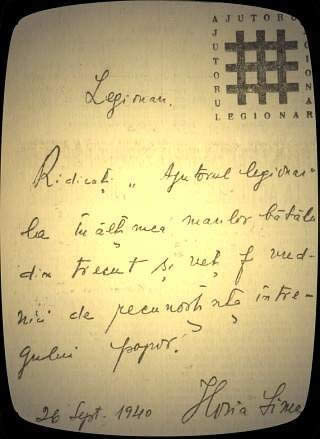 AJUTORUL LEGIONAR
AJUTORUL LEGIONAR
Legionari.
Ridicați „Ajutorul legionar"
la înălțimea marilor bătălii
din trecut și veți fi vred-
nici de recunoștința între-
gului popor.
26 Sept. 1940 Horia Sima